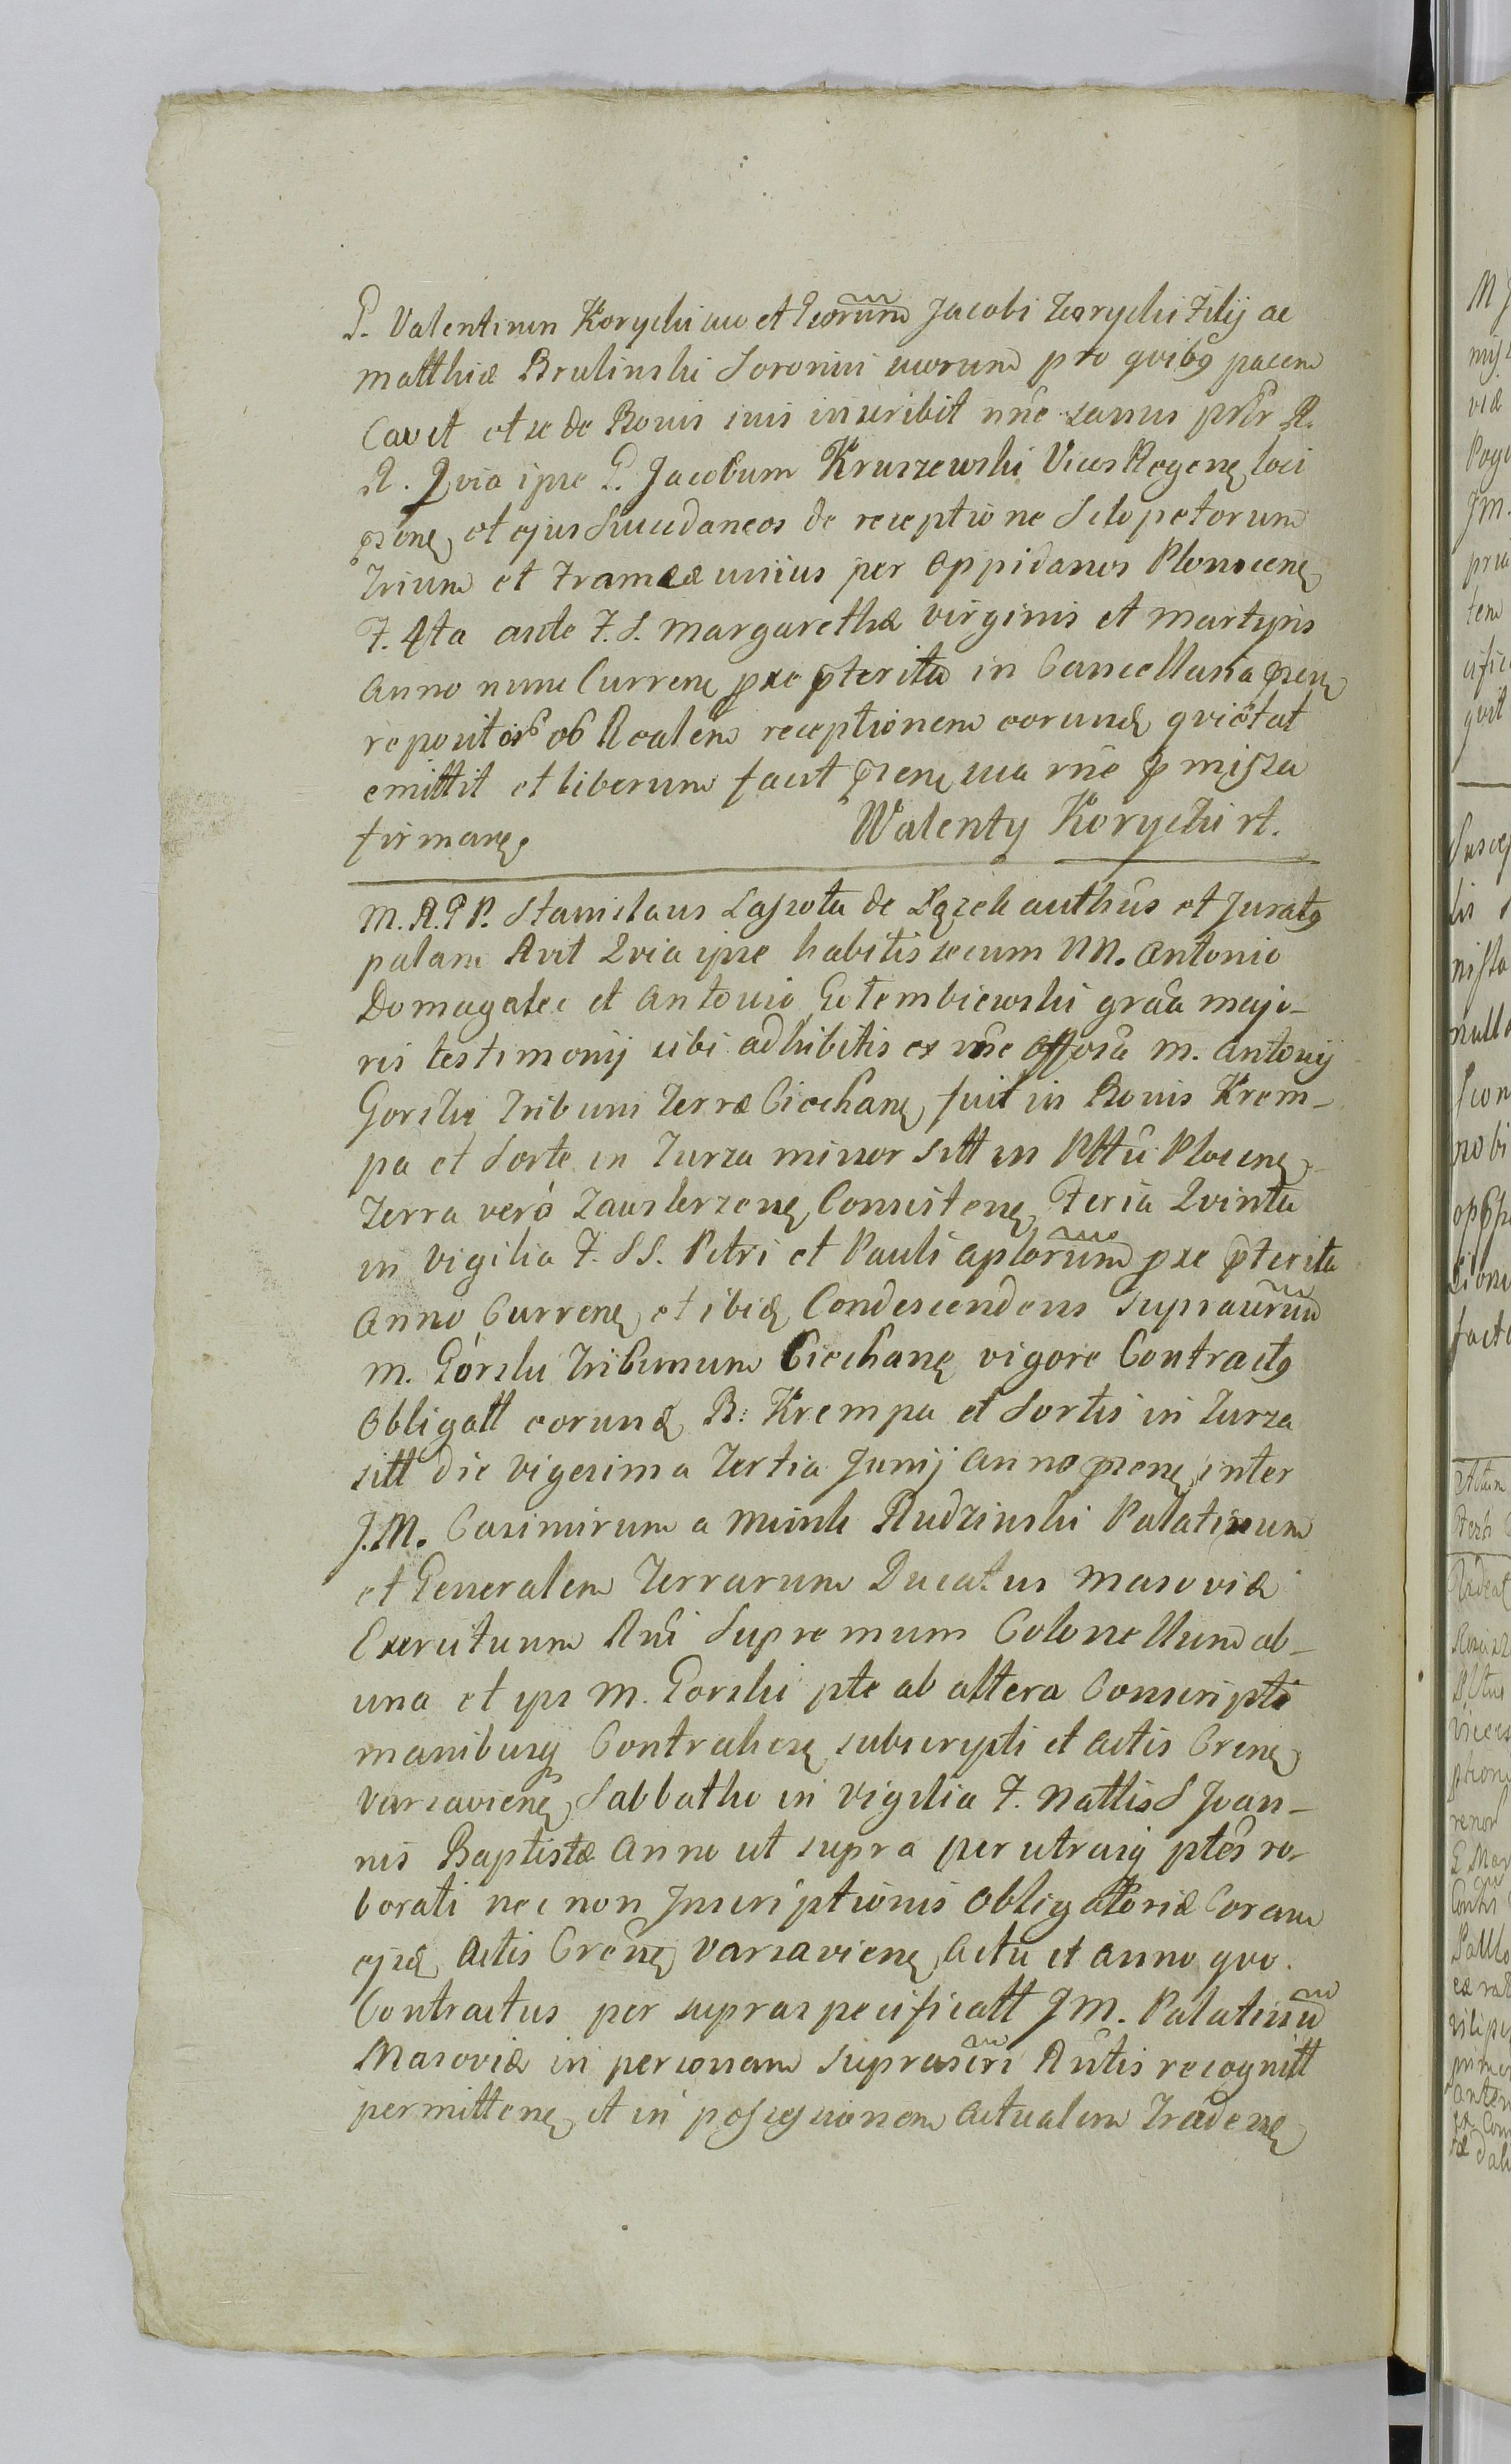 G. Valentinus Korycki suo et Gsorum Jacobi Korycki Filij ac
Matthiæ Brulinski Sororini suorum pro quibq pacem
Cavet et se de Bonis suis inscribit nnē sanus prñr R.
R. Quia ipse G. Jacobum Kruszewski Vices Regenę loci
psenę et ejus Succedaneos de receptione Sclopetorum
Trium et Frameæ unius per Oppidanos Plonscenę
F. 4ta ante F. S. Margarethæ Virginis et Martyris
Anno nunc Currenę pxe pterita in Cancellaria psenę
repositor ob Realem receptionem eorundę qviétat
emittit et liberum facit psenę sua mē pmissa
firmanę. Walenty Korycki rt.
M. R. G P. Stanislaus Lassota de Łązek authūs et Juratq
palam Rvit Qvia ipse habitis secum NN. Antonio
Domagalec et Antonio Gołembiewski grāa majo-
ris testimonij sibi adhibitis ex mē Offosā M. Antonij
Gorski Tribuni Terræ Ciechanę fuit in Bonis Krem-
pa et Sorte in Turza minor sitt in Pttū Plocenę
Terra verò Zawskrzenę Consistenę Feria Qvinta
in Vigilia F. SS. Petri et Pauli Aplorum pxe pterita
Anno Currenę et ibidę Condescendens supraũrum
M. Górski Tribunum Ciechanę vigore Contractq
Obligatt eorundę B: Krempa et Sortis in Turza
sitt die Vigesima Tertia Junij Anno psenę inter
J.M. Casimirum a Minsk Rudzinski Palatinum
et Generalem Terrarum Ducatus Masoviæ
Exercituum Rñi Supremum Colonellum ab-
una et ips M. Gorski pte ab altera Conscripti
manibusq Contrahenę subscripti et Actis Crenę
Varsavienę Sabbatho in Vigilia F. Nattis S Joan-
nis Baptistæ Anno ut supra per utrasq ptēs ro-
borati nec non Inscriptionis Obligatoriæ Coram
ejsdę Actis Crenę Varsavienę Actu et Anno quo.
Contractus per supraspecificatt JM. Palatinũ
Masoviæ in personam suprascri Rñtis recognitt
permittenę et in possessionem Actualem Tradenę